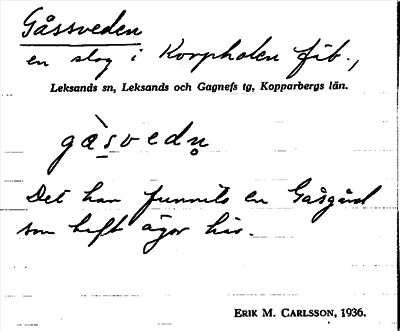 Gåssveden
en slog i Korpholen fäb.,
Leksands sn, Leksands och Gagnefs tg, Kopparbergs län.
gàsvedn̥
Det har funnits en Gåsgård
som haft ägor här.
ERIK M. CARLSSON, 1936.